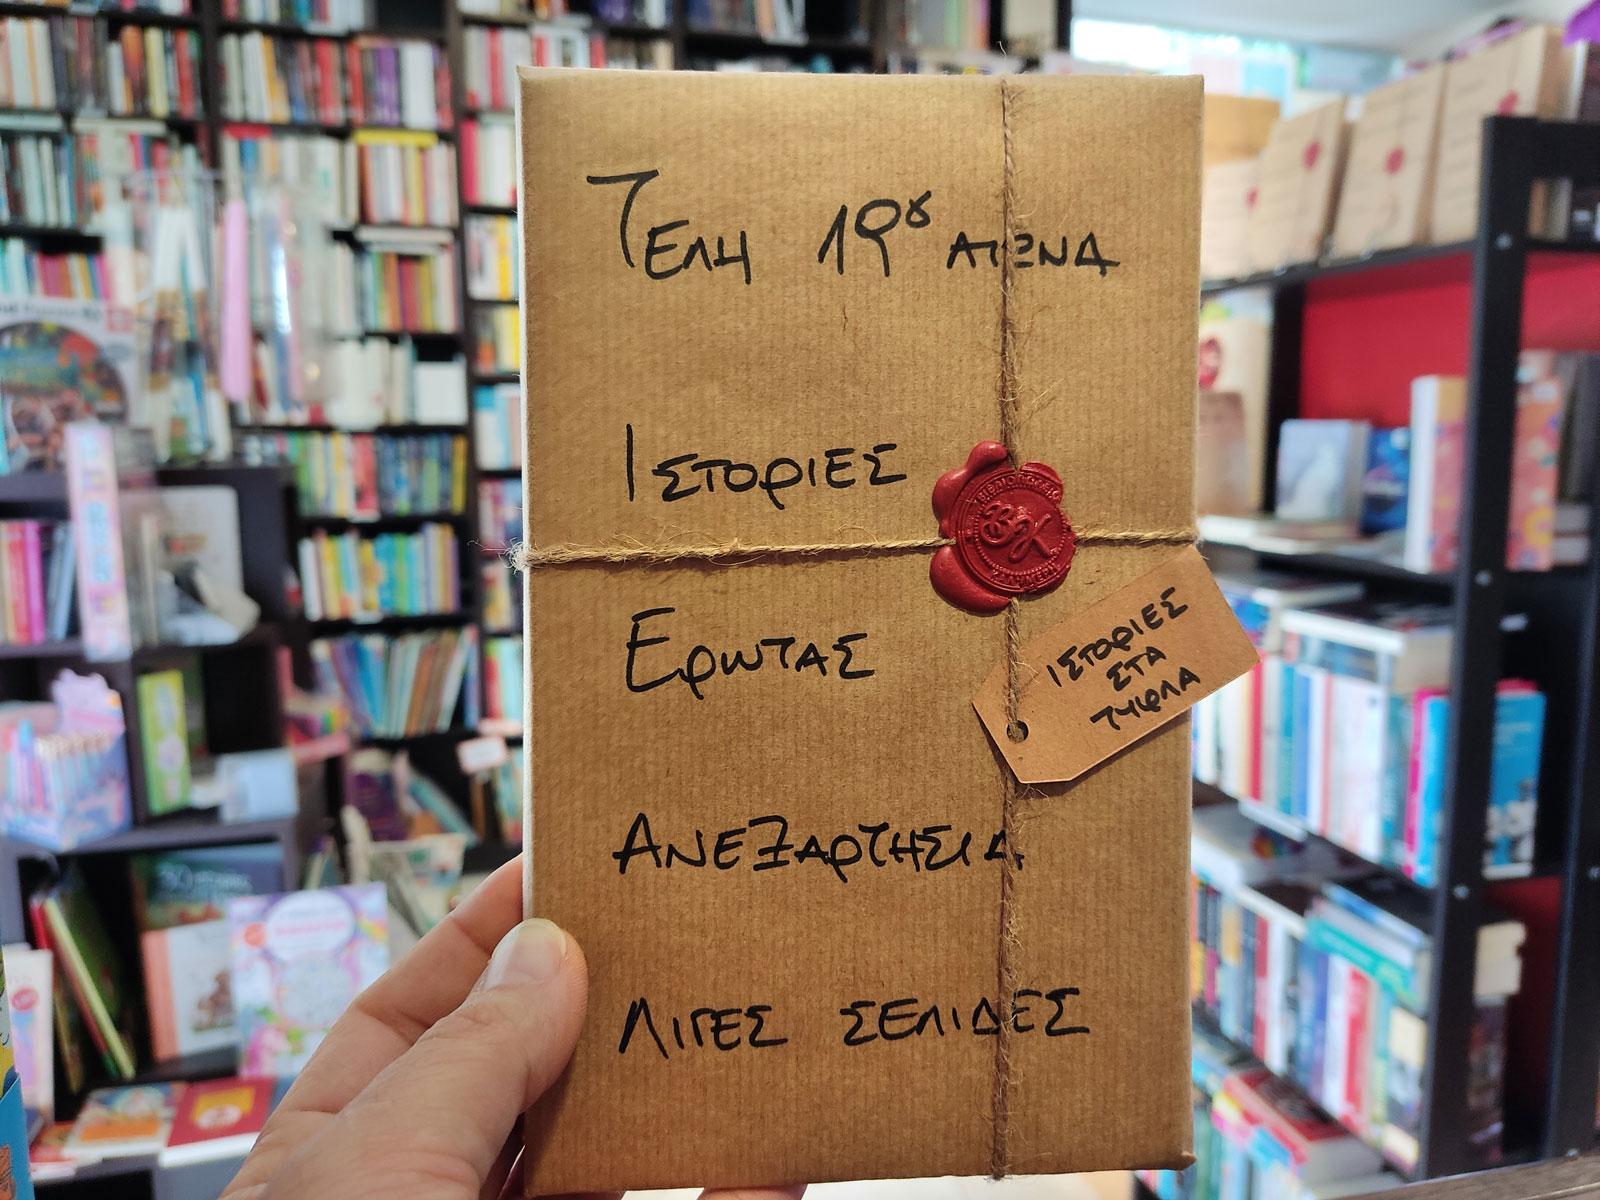 Τελη 19ου αιωνα
Ιστοριες
Ερωτας
Ανεξαρτησια
Λιγες σελιδες
Ιστοριες
στα
τυφλα